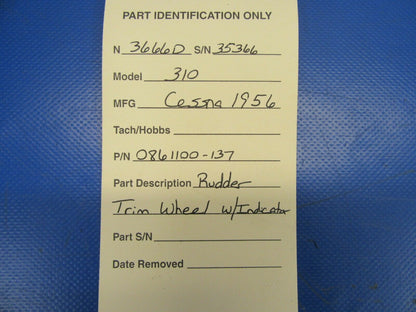 PART IDENTIFICATION ONLY
N 3666D S/N 35366
Model 310
MFG Cessna 1956
Tach/Hobbs
P/N 0861100-137
Part Description Rudder
Trim Wheel w/Indicator
Part S/N
Date Removed